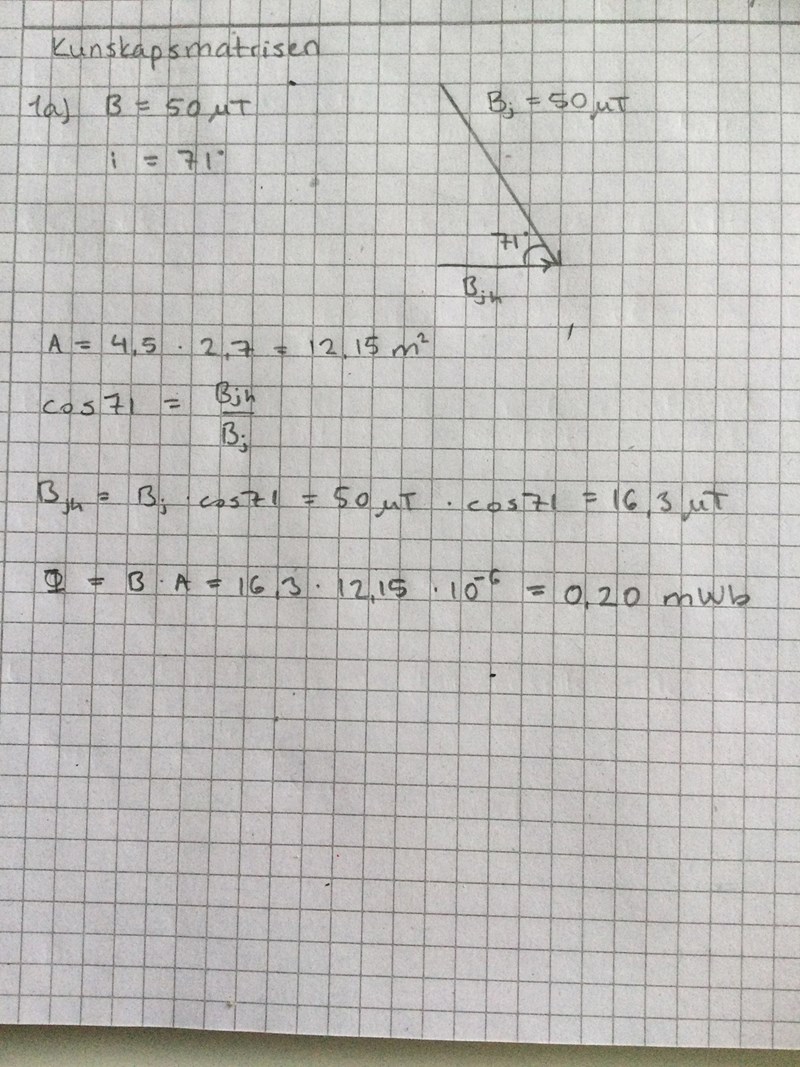 Kunskapsmatrisen
1a) B = 50 μT
Bj = 50 μT
i = 71°
71°
Bjh
A = 4,5 · 2,7 = 12,15 m²
cos71 = Bjh / Bj
Bjh = Bj · cos71 = 50 μT · cos71 = 16,3 μT
Φ = B · A = 16,3 · 12,15 · 10⁻⁶ = 0,20 mWb